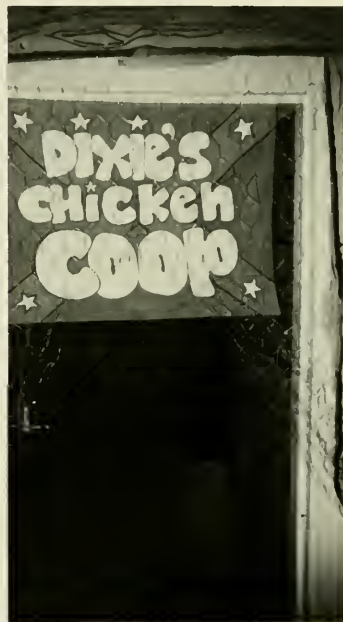 DIXIE'S
CHicken
COOP